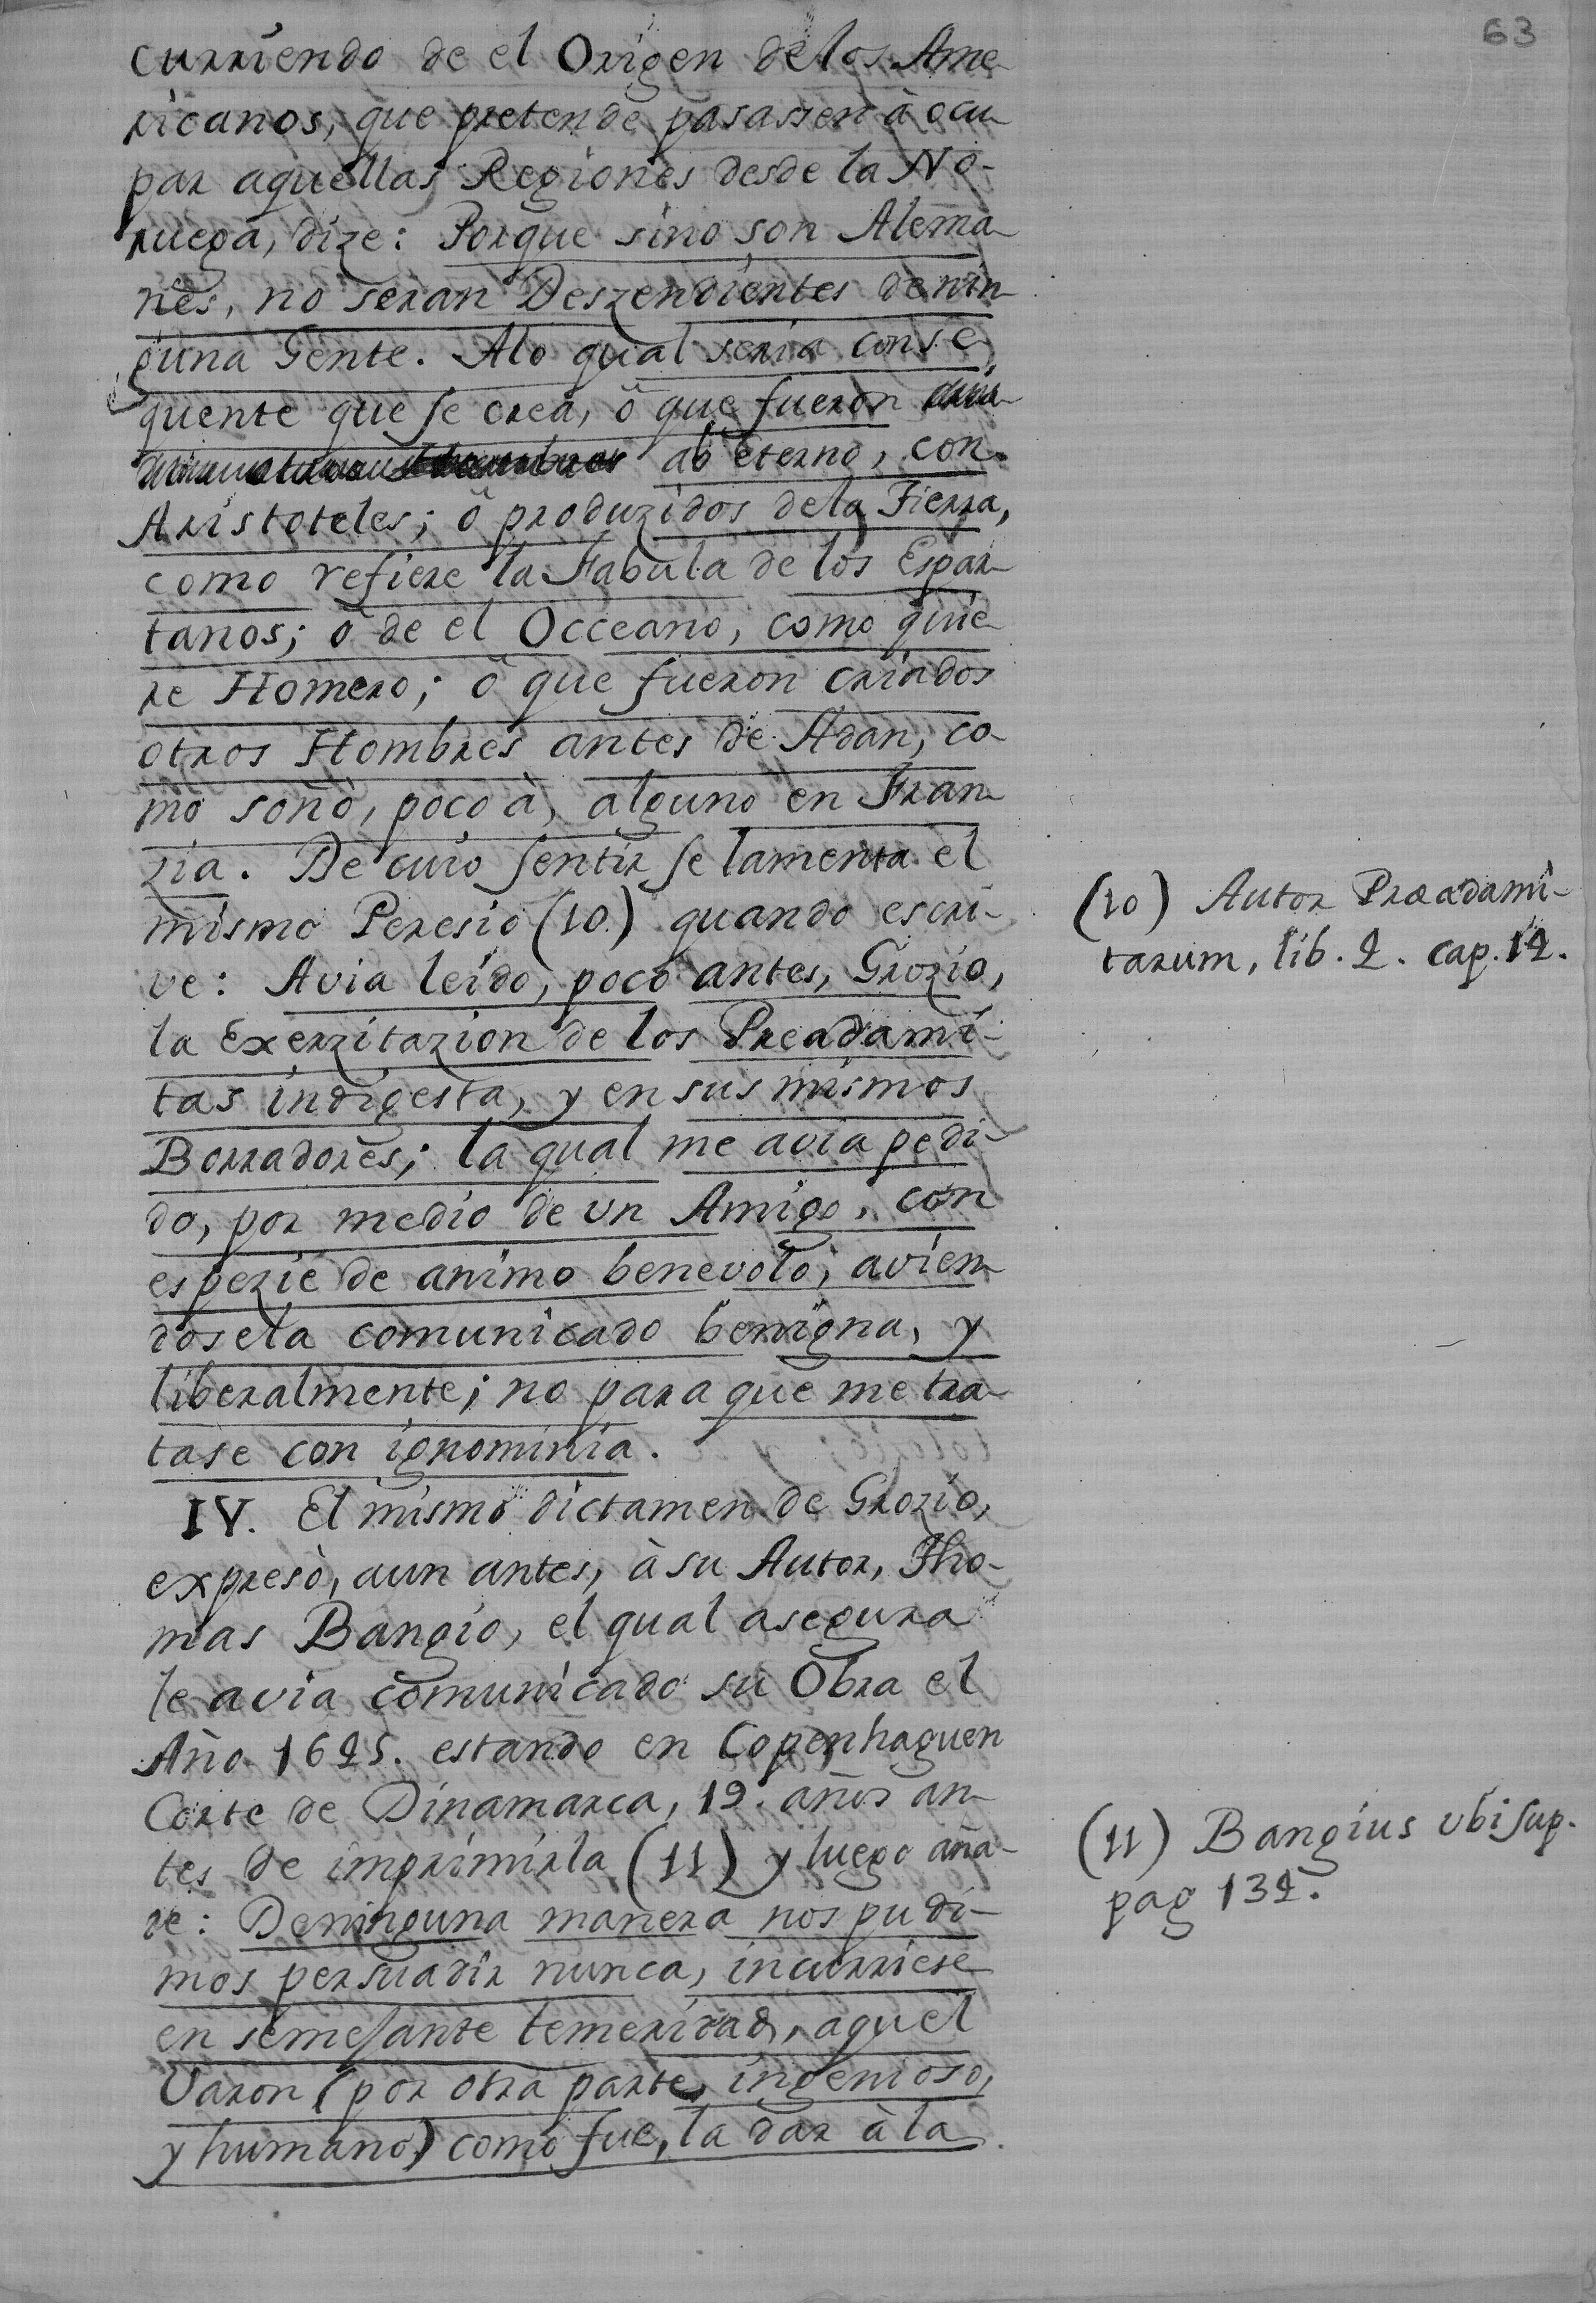 63
curriendo de el Origen de los Ame-
ricanos, que pretende pasassen à ocu-
par aquellas Regiones desde la No-
ruega, dize: Porque sino son Alema-
nes, no seran Deszendientes de nin-
guna Gente. Alo qual seria conse-
quente que se crea, ò que fueron
ab eterno, con
Aristoteles; ò produzidos dela Tierra,
como refiere la Fabula de los Espar-
tanos; ò de el Occeano, como quie-
re Homero; ò que fueron criados
otros Hombres antes de Adan, co-
mo soñò, poco à, alguno en Fran-
zia. De cuio sentir se lamenta el
mismo Peresio (10.) quando escri-
ve: Avia leido, poco antes, Grozio,
la Exerzitazion de los Preadami-
tas indigesta, y en sus mismos
Borradores; la qual me avia pedi-
do, por medio de un Amigo, con
espezie de animo benevolo; avien-
dosela comunicado benigna, y
liberalmente; no para que me tra-
tase con ignominia.
IV. El mismo dictamen de Grozio,
expresò, aun antes, à su Autor, Tho-
mas Bangio, el qual asegura
le avia comunicado su Obra el
Año 1625. estando en Copenhaguen
Corte de Dinamarca, 19. años an-
tes de imprimirla (11) y luego aña-
de: De ninguna manera nos pudi-
mos persuadir nunca, incurriese
en semejante temeridad, aquel
Varon (por otra parte, ingenioso,
y humano) como fue, la dar à la
(10) Autor Præadami-
tarum, lib. 2. cap. 12.
(11) Bangius ubi sup.
pag 132.